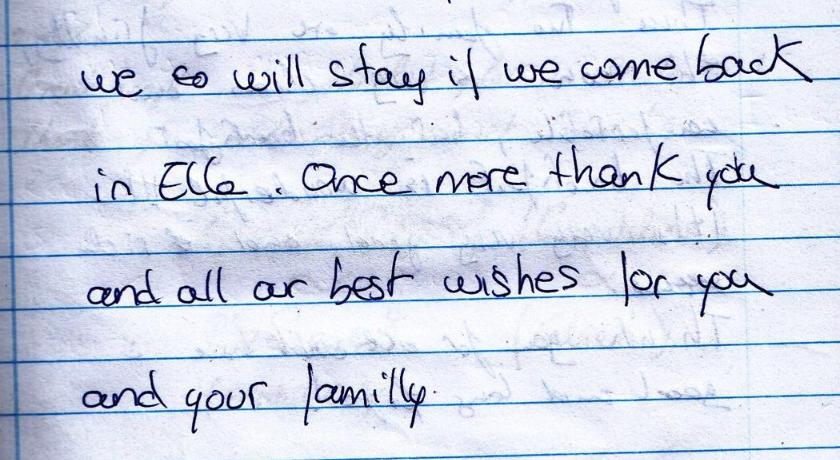 we so will stay if we come back
in Ella. Once more thank you
and all our best wishes for you
and your familly.